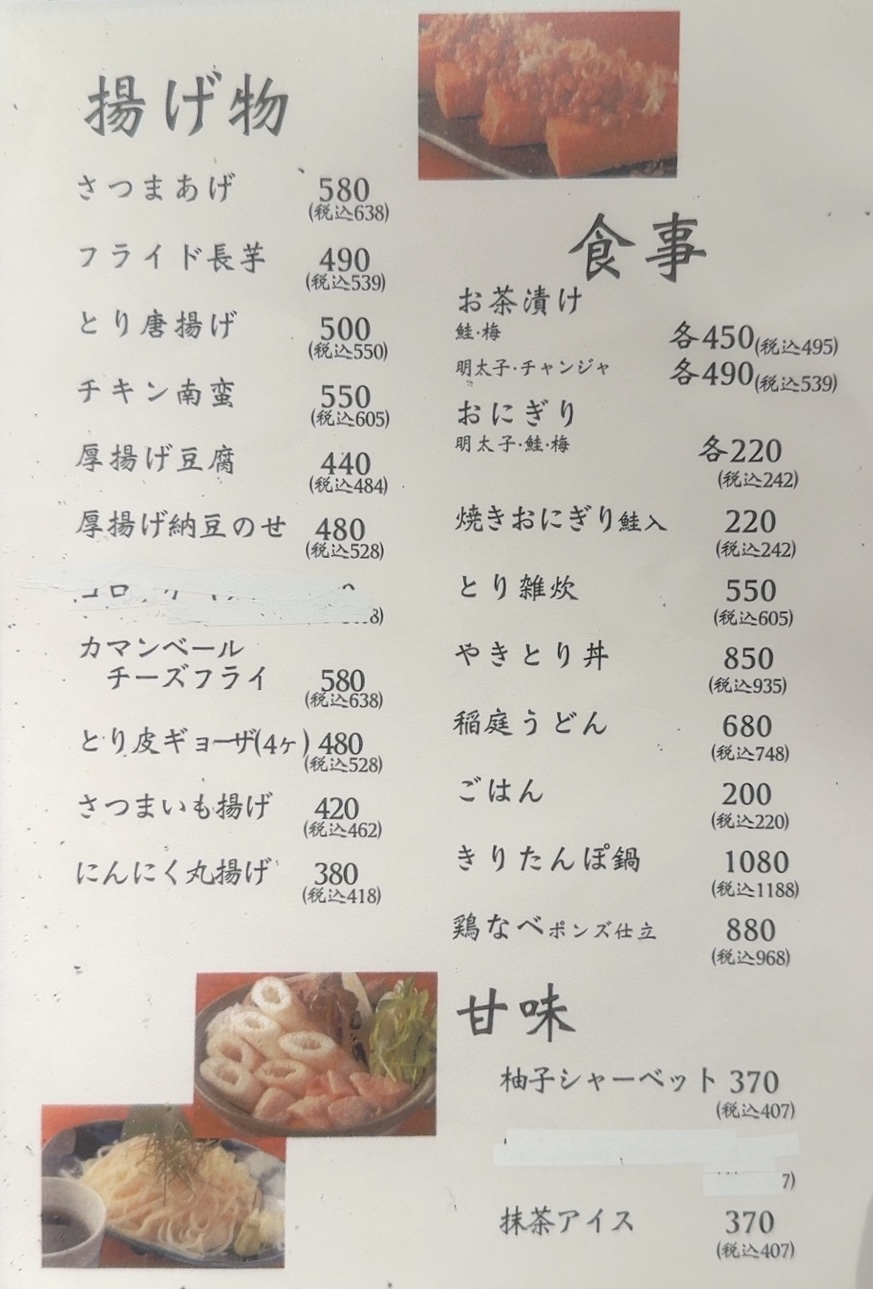 揚げ物
さつまあげ 580
(税込638)
フライド長芋 490
(税込539)
とり唐揚げ 500
(税込550)
チキン南蛮 550
(税込605)
厚揚げ豆腐 440
(税込484)
厚揚げ納豆のせ 480
(税込528)
8)
カマンベール
チーズフライ 580
(税込638)
とり皮ギョーザ(4ヶ) 480
(税込528)
さつまいも揚げ 420
(税込462)
にんにく丸揚げ 380
(税込418)
食事
お茶漬け
鮭・梅 各450(税込495)
明太子・チャンジャ 各490(税込539)
おにぎり
明太子・鮭・梅 各220
(税込242)
焼きおにぎり鮭入 220
(税込242)
とり雑炊 550
(税込605)
やきとり丼 850
(税込935)
稲庭うどん 680
(税込748)
ごはん 200
(税込220)
きりたんぽ鍋 1080
(税込1188)
鶏なべポンズ仕立 880
(税込968)
甘味
柚子シャーベット 370
(税込407)
7)
抹茶アイス 370
(税込407)